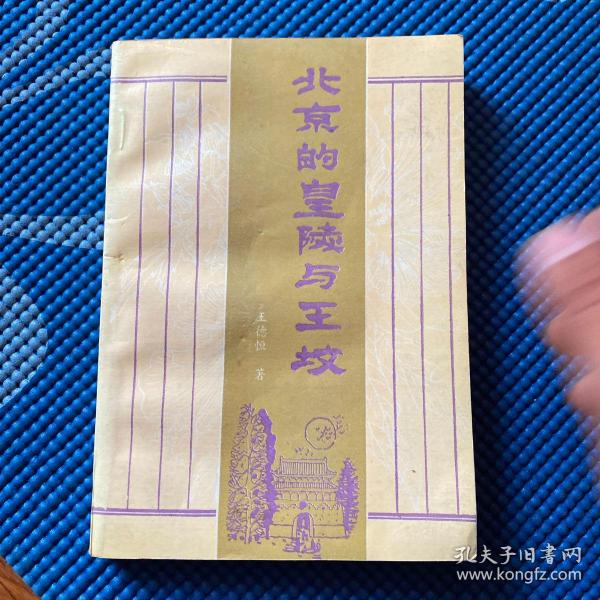 北京的皇陵与王坟
王德恒 著
孔夫子旧书网
www.kongfz.com